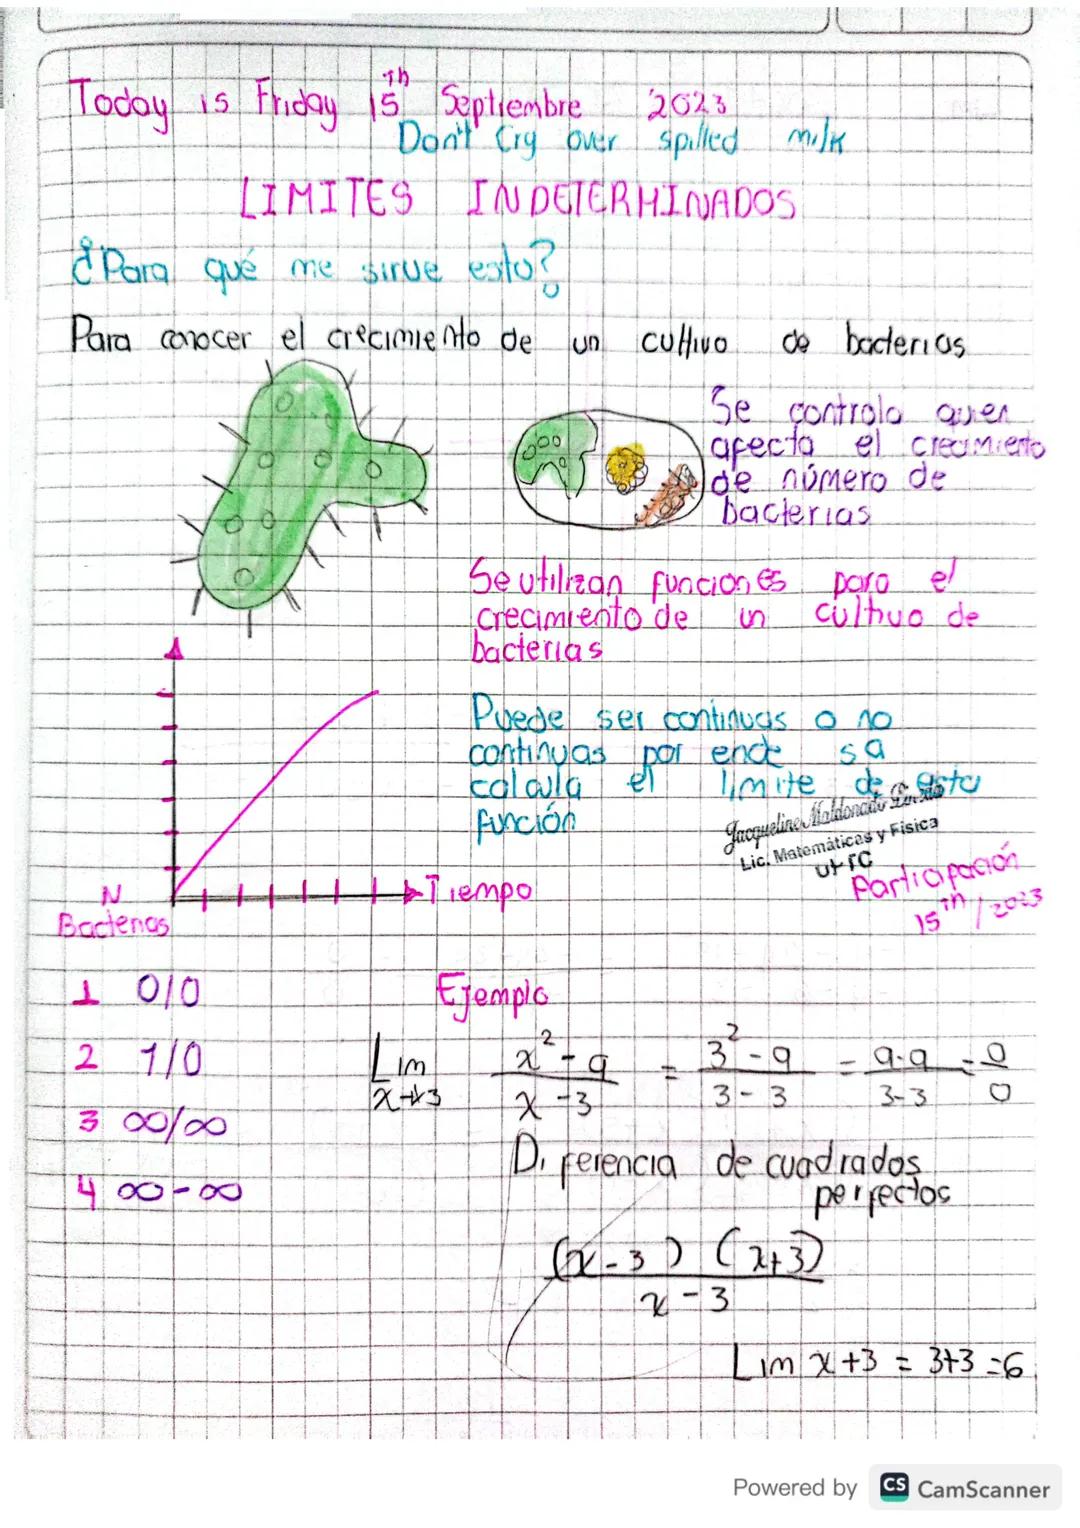 Today is Friday 15th Septiembre 2023
Don't Cry over spilled milk
LIMITES INDETERMINADOS
¿Para qué me sirve esto?
Para conocer el crecimiento de un cultivo de bacterias
Se controla quien
afecta el crecimiento
de número de
bacterias
Se utilizan funciones para el
crecimiento de un cultivo de
bacterias
Puede ser continuas o no
continuas por ende sa
calcula el limite de esta
función
Jacqueline Maldonado
Lic. Matemáticas y Física
UPTC
Participación
15th / 2023
Tiempo
N
Bacterias
1 0/0
2 1/0
3 ∞/∞
4 ∞-∞
Ejemplo
Lim x→3 x²-9 / x-3 = 3²-9 / 3-3 = 9-9 / 3-3 = 0/0
Diferencia de cuadrados
perfectos
(x-3) (x+3) / x-3
Lim x+3 = 3+3 =6
Powered by CS CamScanner